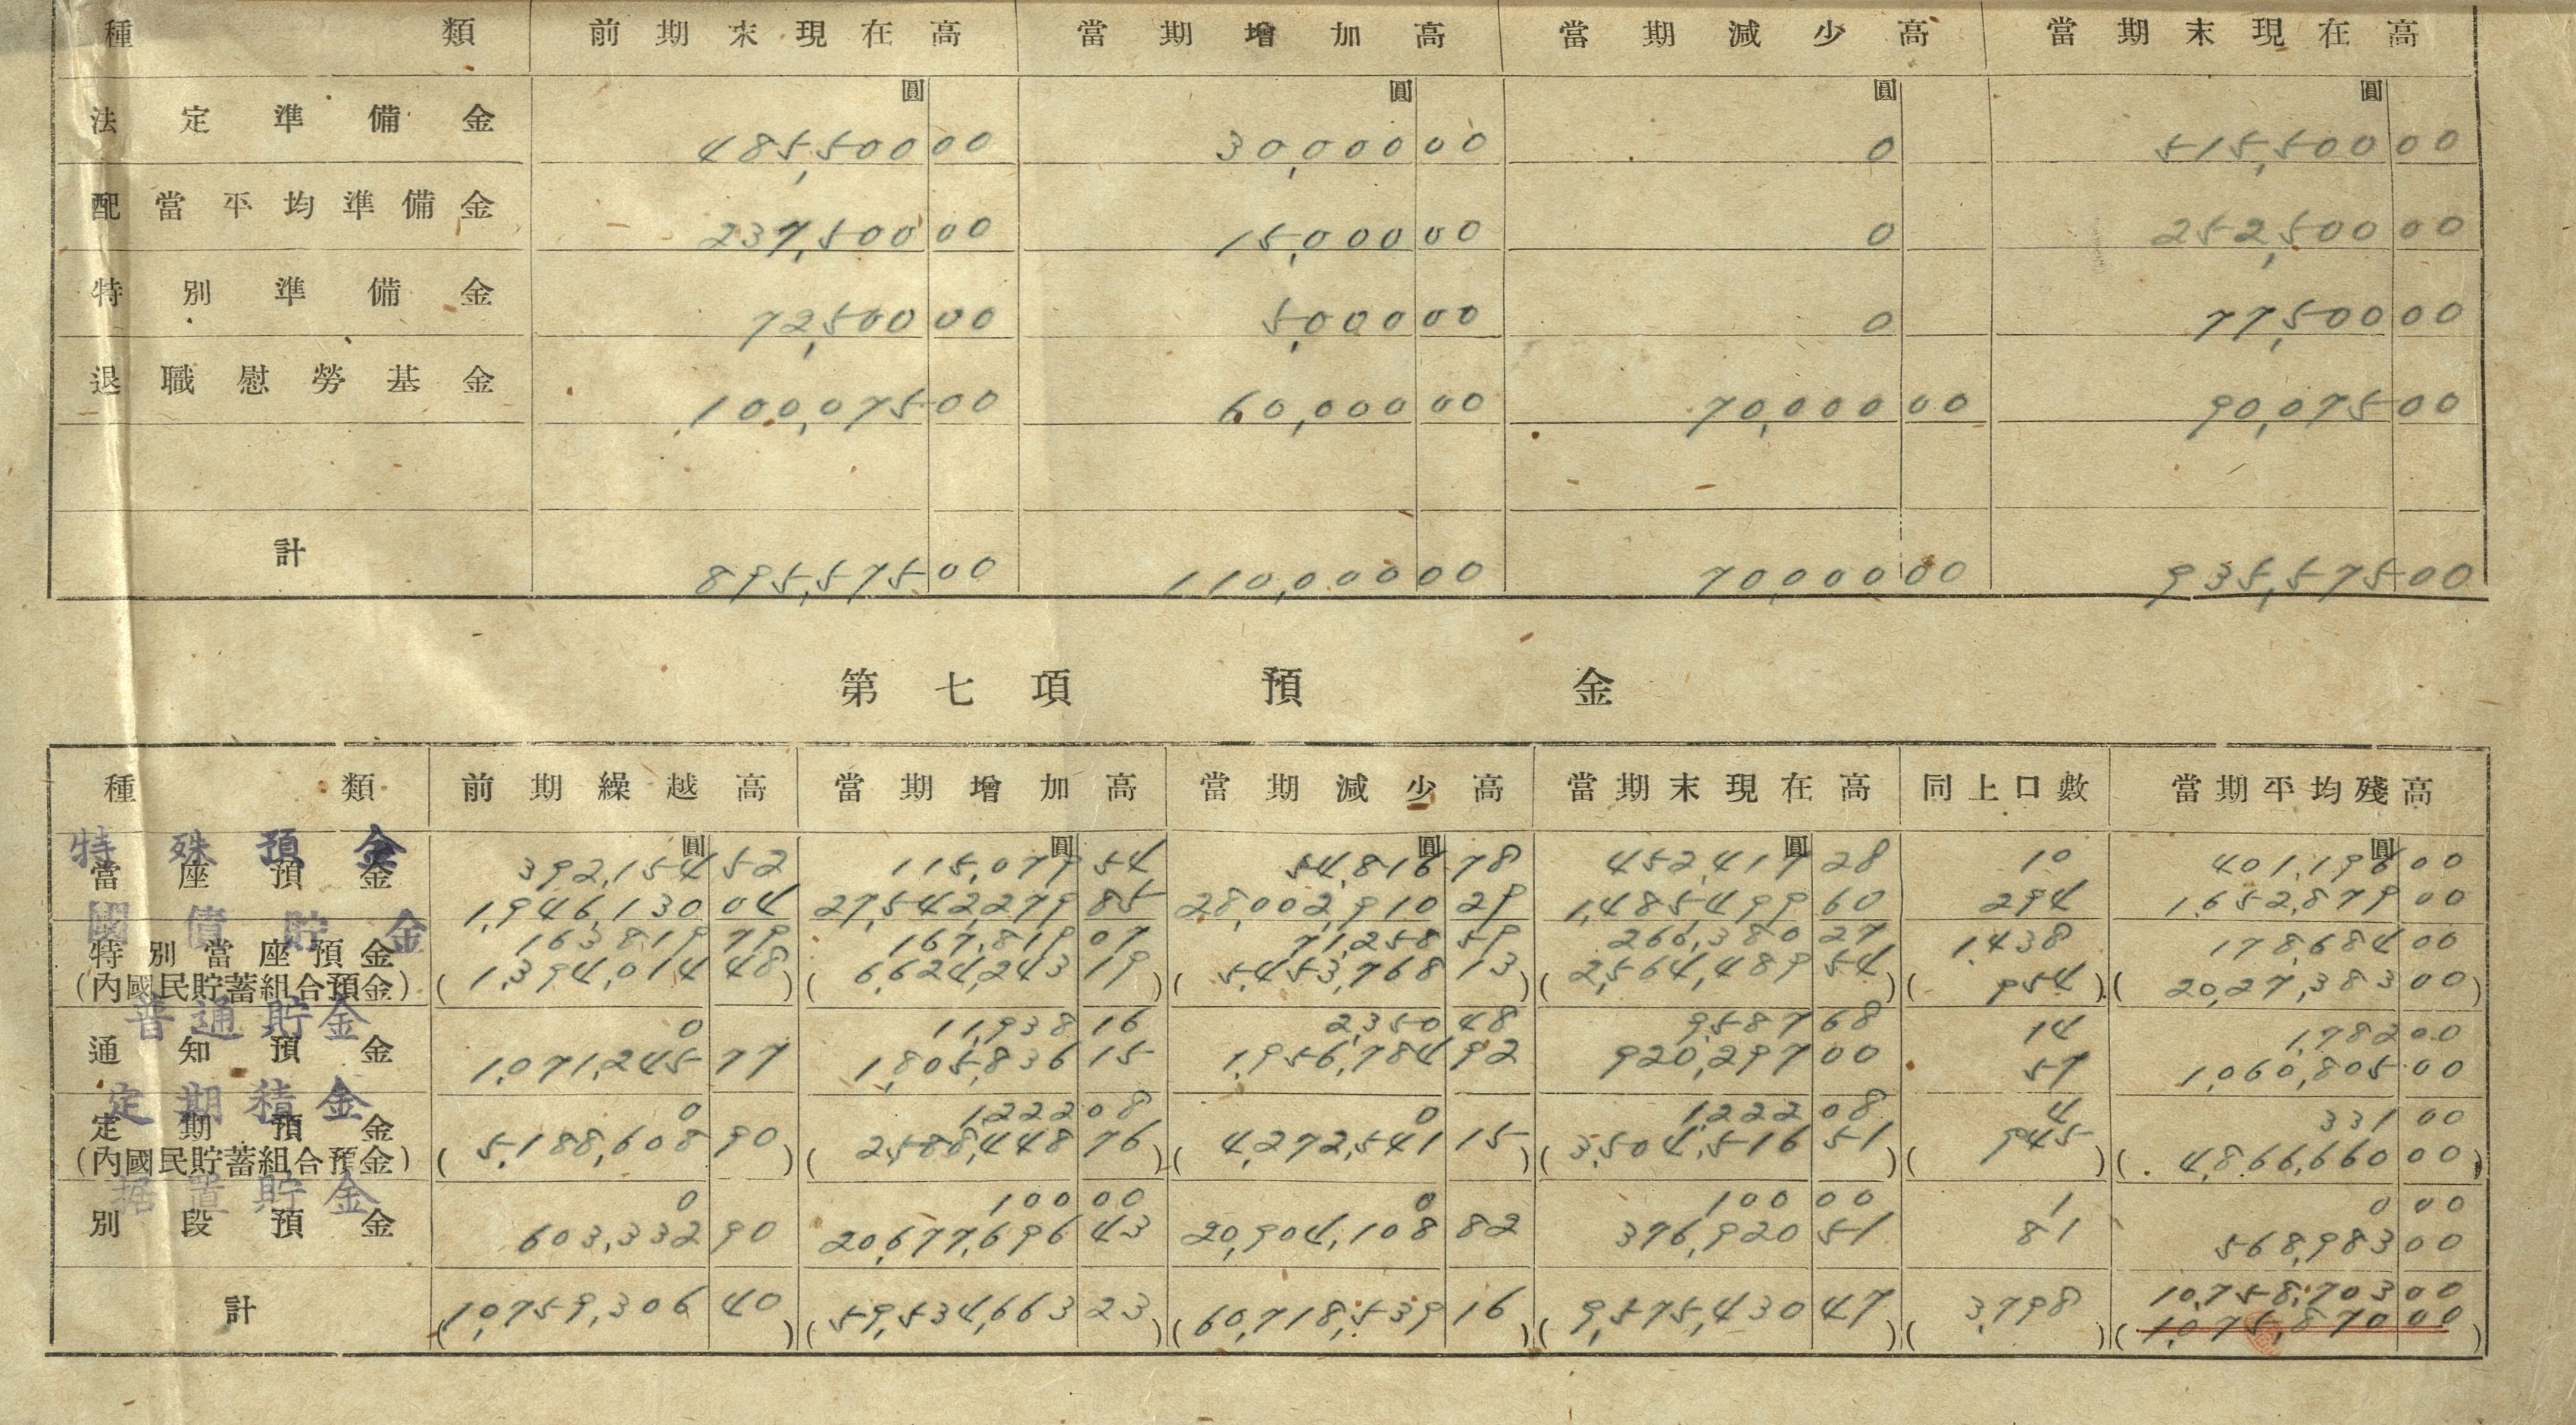 種類 前期末現在高 當期增加高 當期減少高 當期末現在高
圓 圓 圓 圓
法定準備金 485,500 00 30,000 00 0 515,500 00
配當平均準備金 237,500 00 15,000 00 0 252,500 00
特別準備金 72,500 00 5,000 00 0 77,500 00
退職慰勞基金 100,075 00 60,000 00 70,000 00 90,075 00
計 895,575 00 110,000 00 70,000 00 935,575 00
第七項 預金
種類 前期繰越高 當期增加高 當期減少高 當期末現在高 同上口數 當期平均殘高
圓 圓 圓 圓 圓
特殊預金 392,154 52 115,079 54 54,816 78 452,417 28 10 401,196 00
當座預金 1,946,130 04 27,542,279 85 28,002,910 29 1,485,499 60 294 1,652,879 00
國債貯金 163,819 79 167,819 07 71,258 59 260,380 27 1,438 178,684 00
特別當座預金 1,394,014 48 6,624,243 19 5,453,768 13 2,564,489 54 954 20,27,383 00
(內國民貯蓄組合預金) ( ) ( ) ( ) ( ) ( ) ( )
普通貯金 0 11,938 16 2,350 48 9,587 68 14 1,782 00
通知預金 1,071,245 77 1,805,836 15 1,956,784 92 920,297 00 57 1,060,805 00
定期積金 0 1,222 08 0 1,222 08 4 331 00
定期預金 5,188,608 90 2,588,448 76 4,272,541 15 3,504,516 51 945 4,866,660 00
(內國民貯蓄組合預金) ( ) ( ) ( ) ( ) ( ) ( )
据置貯金 0 100 00 0 100 00 1 0 00
別段預金 603,332 90 20,677,696 43 20,904,108 82 376,920 51 81 568,983 00
10,758,703 00
計 (10,759,306 40) (59,534,663 23) (60,718,539 16) (9,575,430 47) (3,798) (1,075,870 00)